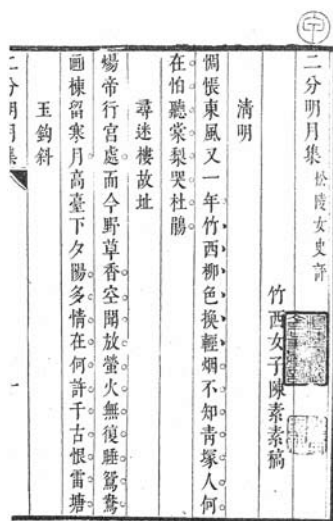 二分明月集 松陵女史評
竹西女子陳素素稿
清明
惆悵東風又一年竹西柳色換輕烟不知靑塚人何
在怕聽棠梨哭杜鵑
尋迷樓故址
煬帝行宮處而今野草香空聞放螢火無復睡鴛鴦
画棟留寒月高臺下夕陽多情在何許千古恨雷塘
玉鈎斜
二分明月集
一